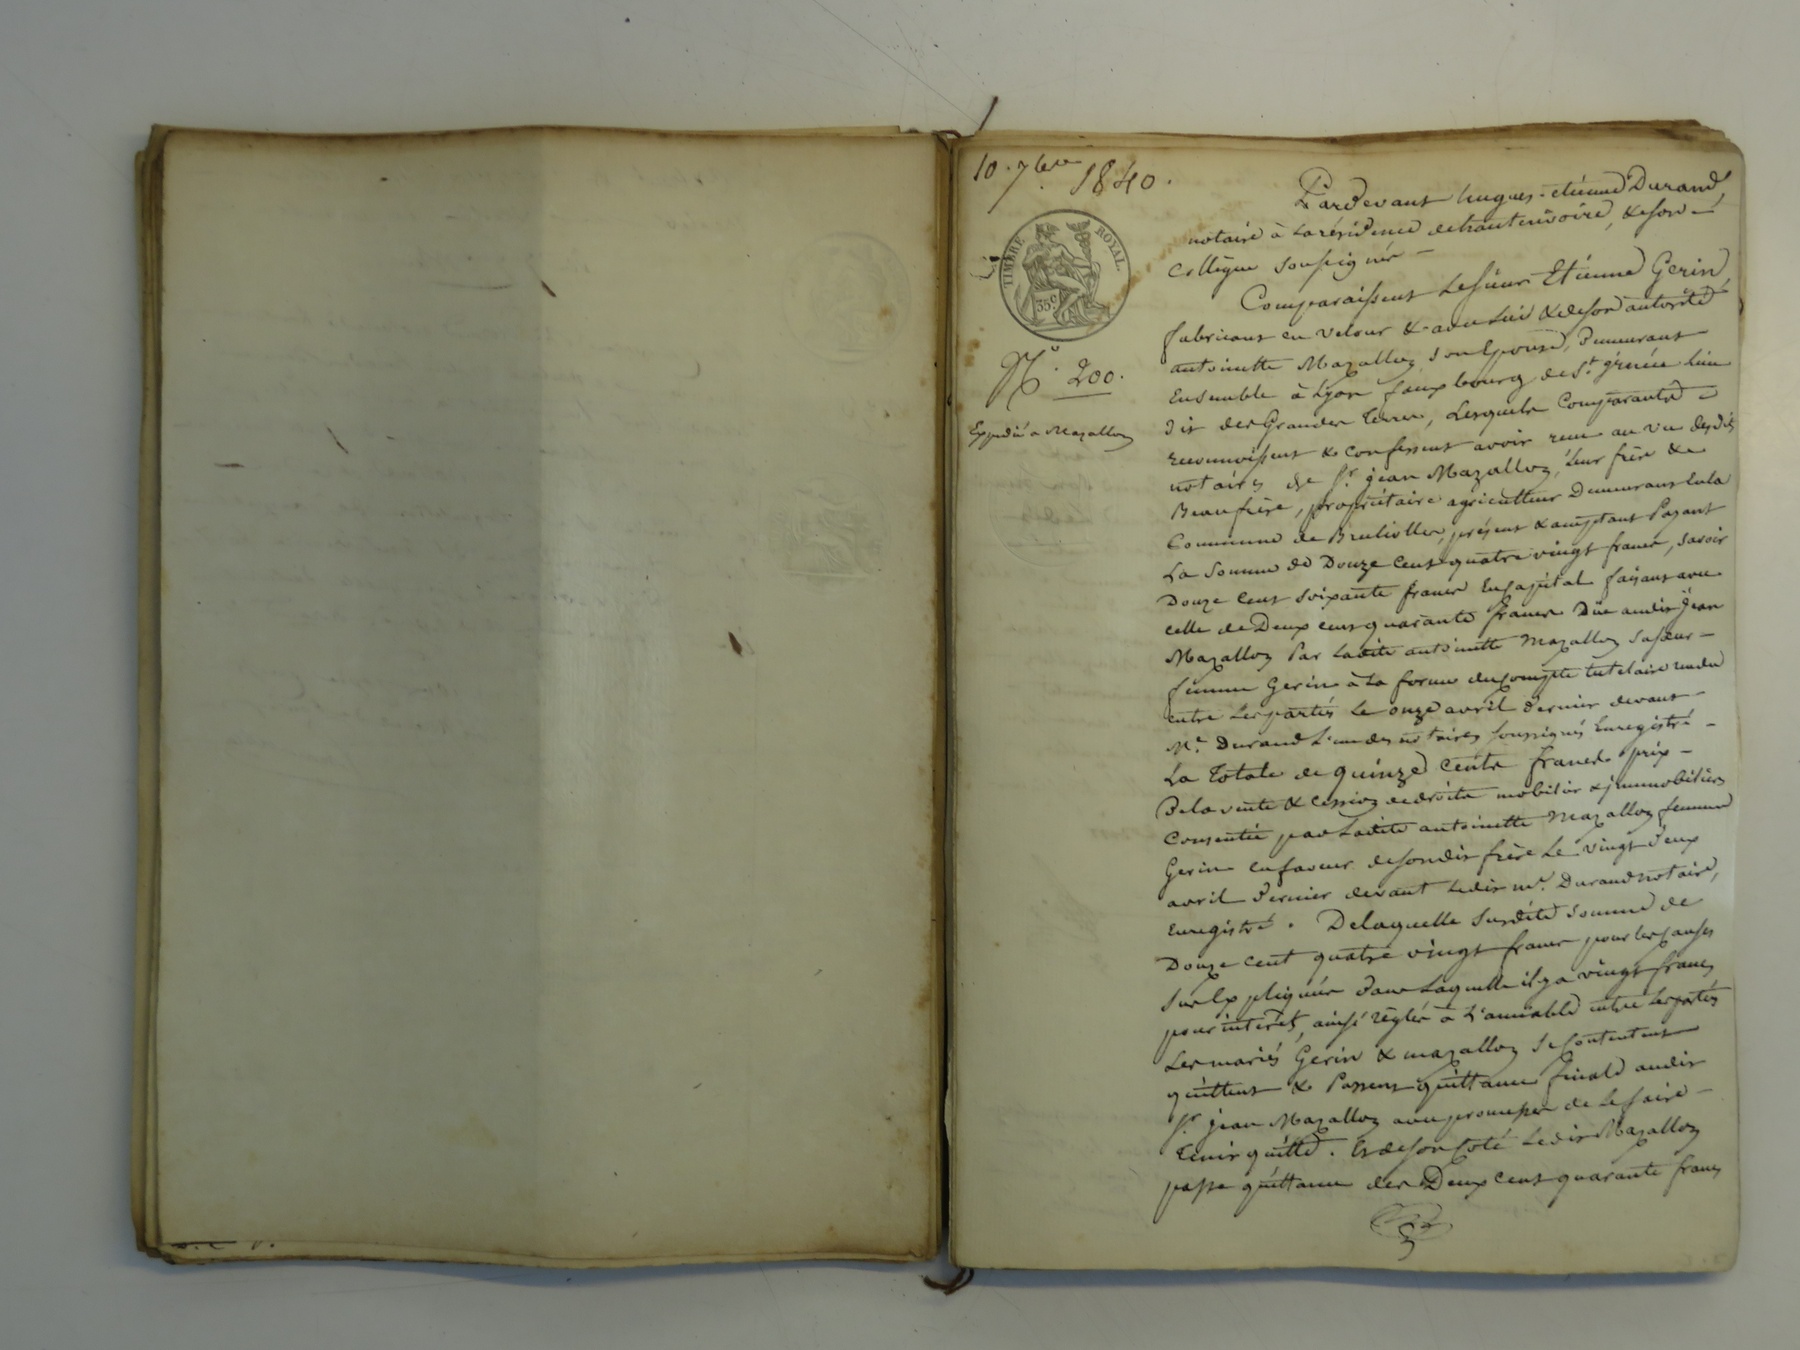 10. 7bre 1840.
TIMBRE ROYAL.
35c.
No. 200.
Expédié a Mazalloz
Pardevant hugues-etienne Durand,
notaire à la résidence de hauterivoire, & son
Collègue soussigné
Comparaissent Le sieur Etienne Gerin
fabricant en velour & avec lui & de son autorité
antoinette Mazalloz son Epouse, Demeurant
Ensemble à Lyon faux bourg de St. irénée lieu
dit des Grandes Terres, Lesquels Comparants
reconnoissent & confessent avoir recu au vu desdits
notaires de Sr. jean Mazalloz, leur frère &
Beaufrère, propriétaire agriculteur Demeurant en la
Commune de Brullioles, présent & acceptant Payant
La Somme de Douze Cent quatre vingt francs, savoir
Douze Cent soixante francs En capital faisant avec
celle de Deux cent quarante francs Düe audit Jean
Mazalloz Par Ladite antoinette Mazalloz sa sœur
femme Gerin à La forme du compte tutelaire rendu
entre Les parties Le onze avril dernier devant
Me. Durand L'un des notaires soussignés Enregistré
La Totale de quinze Cents francs prix
De la vente & Cession de droits mobilier & immobiliers
Consentie par Ladite antoinette Mazalloz femme
Gerin en faveur de son dit frère Le vingt deux
avril dernier devant Ledit me. Durand notaire,
Enregistré. De laquelle susdite somme de
Douze cent quatre vingt francs pour les causes
sus Expliquées dans Laquelle il y a vingt francs
pour interêt, ainsi règlés à L'amiable entre les parties
Les mariés Gerin & mazalloz se contentent
quittent & Passent quittance finale audit
Sr. jean Mazalloz avec promesses de Le faire
Tenir quitte. Et de son coté Ledit Mazalloz
passe quittance des Deux cent quarante francs